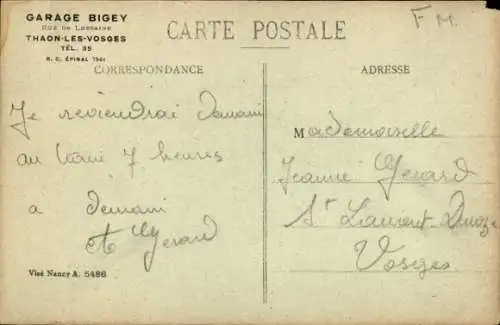 GARAGE BIGEY
RUE DE LORRAINE
THAON-LES-VOSGES
TÉL. 35
R. C. ÉPINAL 7561
CARTE POSTALE
F M.
CORRESPONDANCE
ADRESSE
Je reviendrai Demain
au train 7 heures
a Demain
Gerard
Mademoiselle
Jeanne Gerard
St Laurent
Vosges
Visé Nancy A. 5486